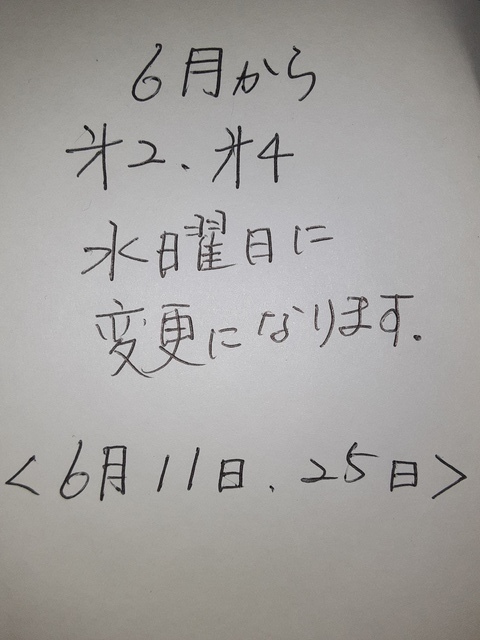 6月から
㐧2、㐧4
水曜日に
変更になります.
<6月11日、25日>